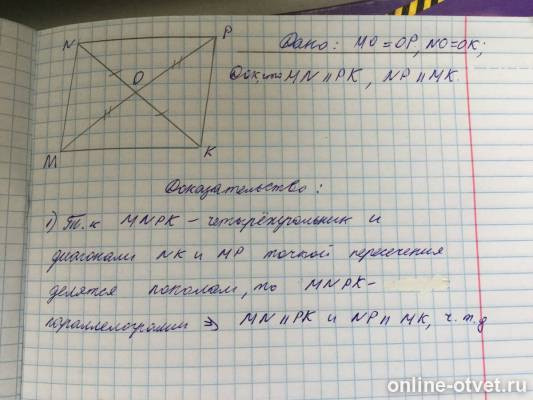 N
P
O
M
K
Дано: MO=OP, NO=OK;
Док, что MN || PK, NP || MK.
Доказательство:
1) Т.к MNPK - четырёхугольник и
диагонали NK и MP точкой пересечения
делятся пополам, то MNPK-
параллелограмм => MN || PK и NP || MK, ч.т.д
online-otvet.ru